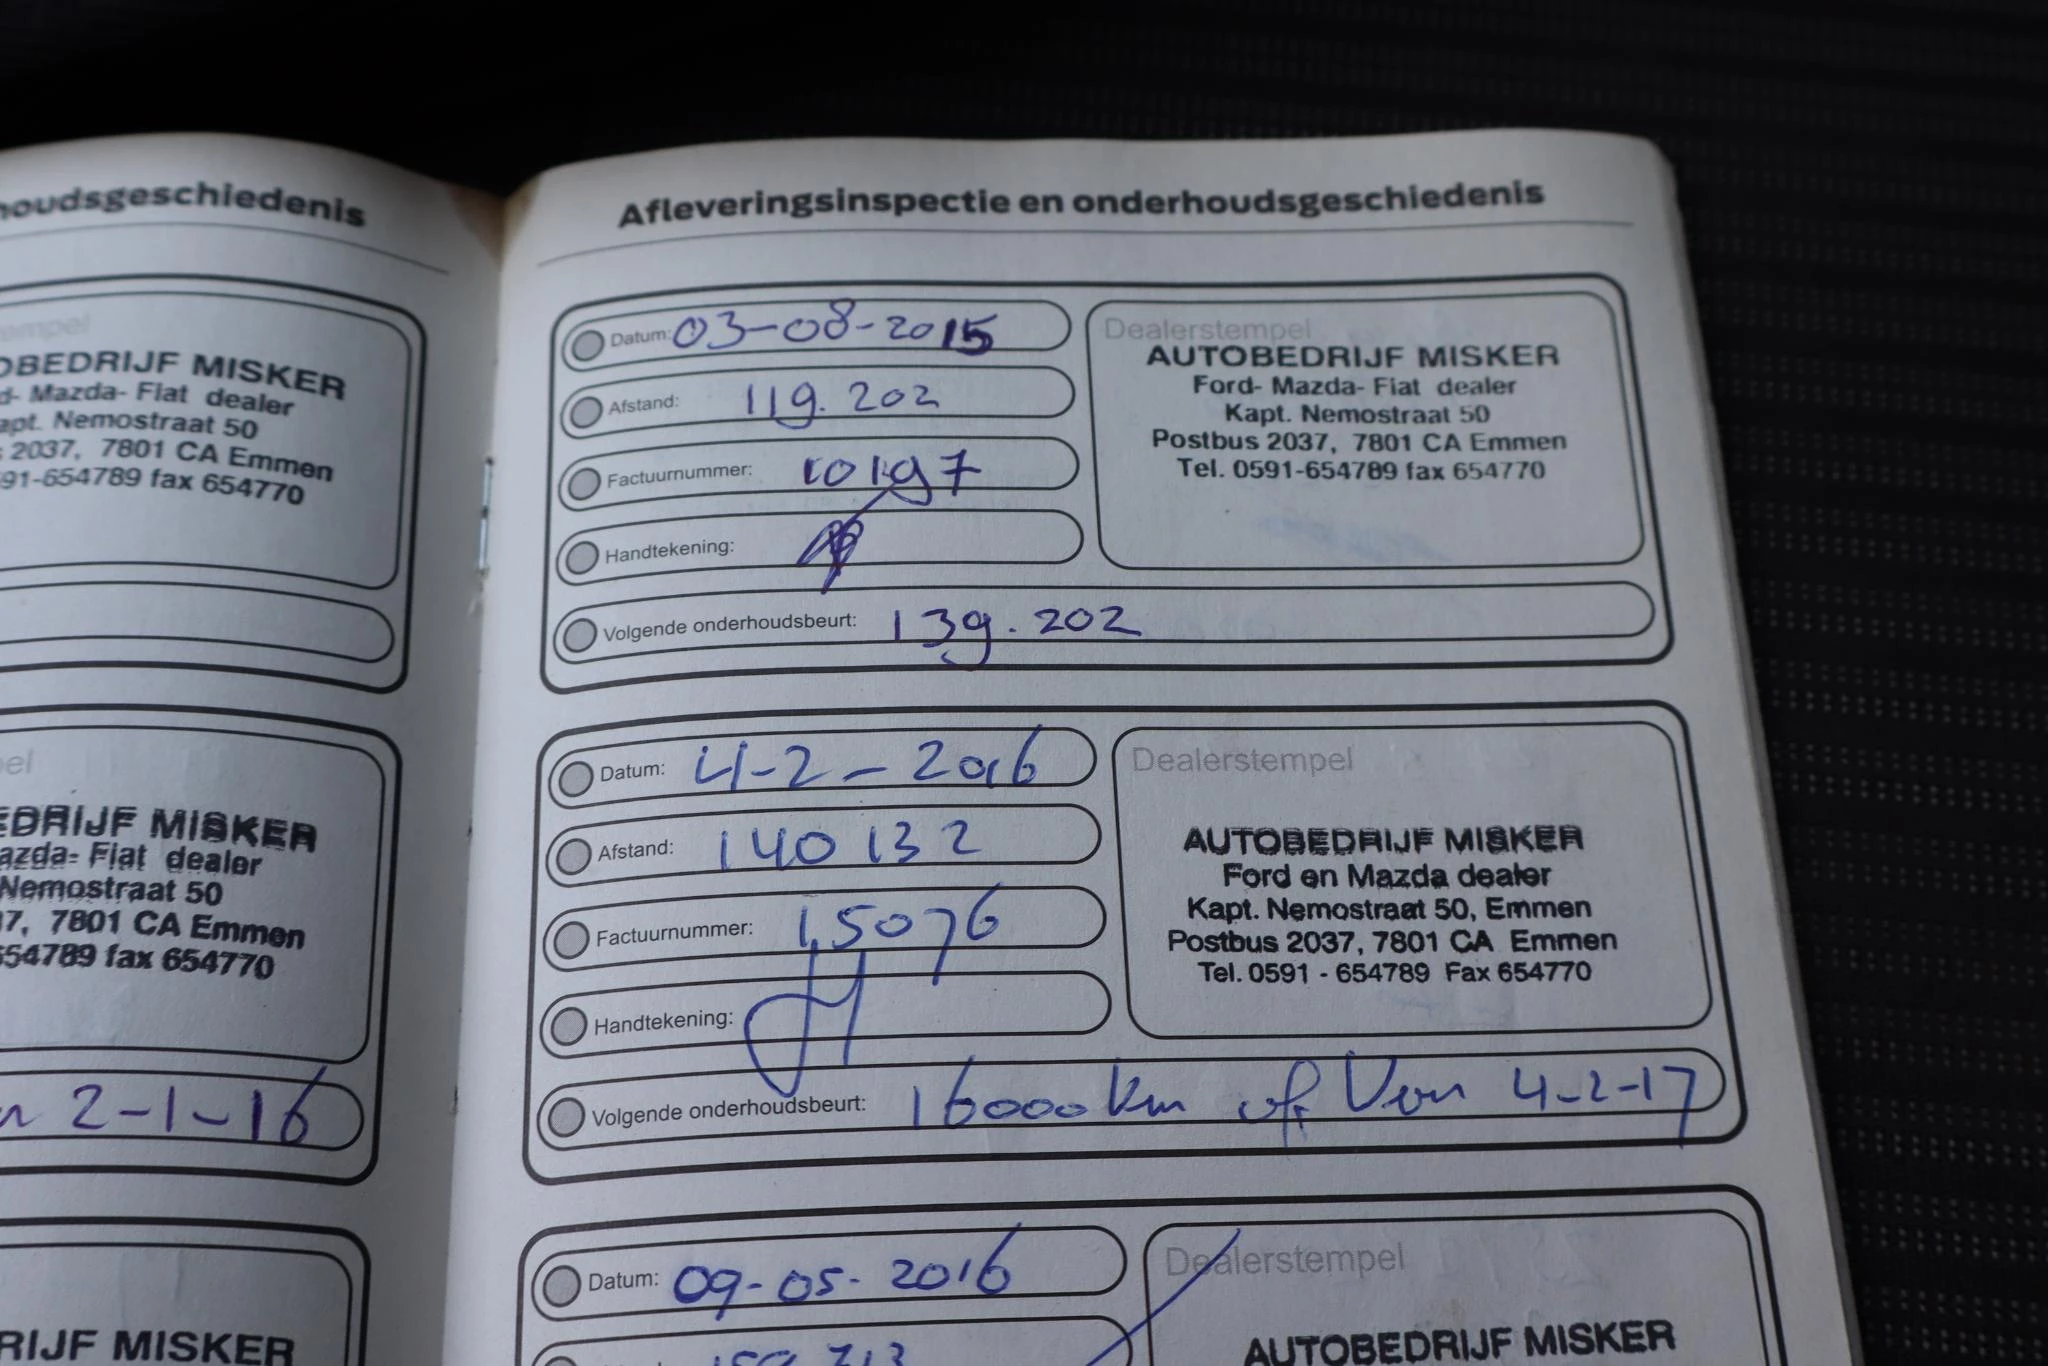 houdsgeschiedenis
OBEDRIJF MISKER
d- Mazda- Fiat dealer
apt. Nemostraat 50
2037, 7801 CA Emmen
591-654789 fax 654770
EDRIJF MISKER
azda- Fiat dealer
Nemostraat 50
37, 7801 CA Emmen
654789 fax 654770
2-1-16
RIJF MISKER
Afleveringsinspectie en onderhoudsgeschiedenis
Datum: 03-08-2015
Afstand: 119.202
Factuurnummer: 10197
Handtekening:
Volgende onderhoudsbeurt: 139.202
Dealerstempel
AUTOBEDRIJF MISKER
Ford- Mazda- Fiat dealer
Kapt. Nemostraat 50
Postbus 2037, 7801 CA Emmen
Tel. 0591-654789 fax 654770
Datum: 4-2-2016
Afstand: 140132
Factuurnummer: 15076
Handtekening:
Volgende onderhoudsbeurt: 16000 km of Voor 4-2-17
Dealerstempel
AUTOBEDRIJF MISKER
Ford en Mazda dealer
Kapt. Nemostraat 50, Emmen
Postbus 2037, 7801 CA Emmen
Tel. 0591 - 654789 Fax 654770
Datum: 09-05-2016
Dealerstempel
AUTOBEDRIJF MISKER